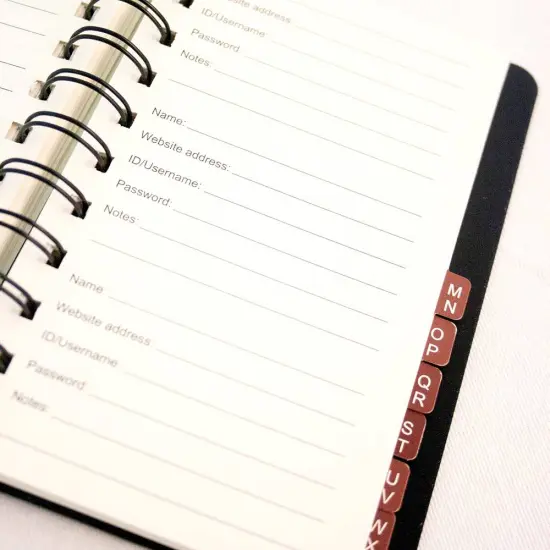 Website address:
ID/Username:
Password
Notes:
Name:
Website address:
ID/Username:
Password:
Notes:
Name
Website address
ID/Username
Password
Notes:
M
N
O
P
Q
R
S
T
U
V
W
X